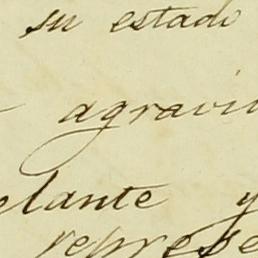 su estado
agravi
elante y
represe